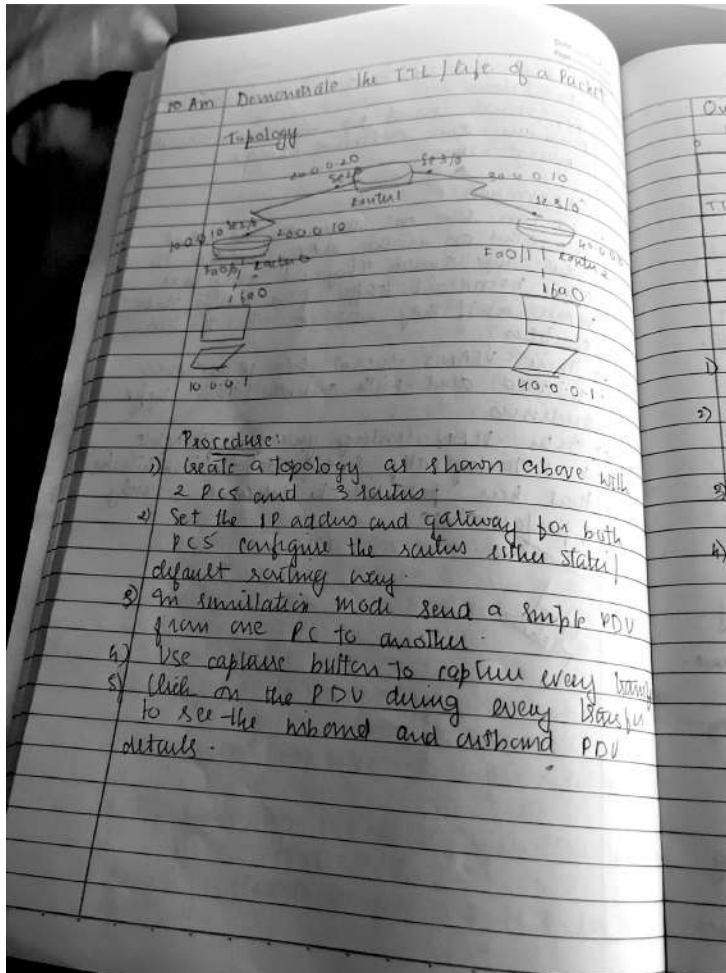 10 Am
Demonstrate the TTL / life of a Packet
Topology
20.0.0.20
Se3/0
30.0.0.10
Router1
Se3/0
10.0.0.10
20.0.0.10
Fa0/1
Fa0/1
Fa0
Fa0
10.0.0.1
40.0.0.1
Procedure:
1) Create a topology as shown above with
2 PCs and 3 routers.
2) Set the IP address and gateway for both
PCs configure the routers either static/
default routing way.
3) In simulation mode send a simple PDU
from one PC to another.
4) Use capture button to capture every
5) Click on the PDU during every transfer
to see the inbound and outbound PDU
details.
1)
2)
3)
4)